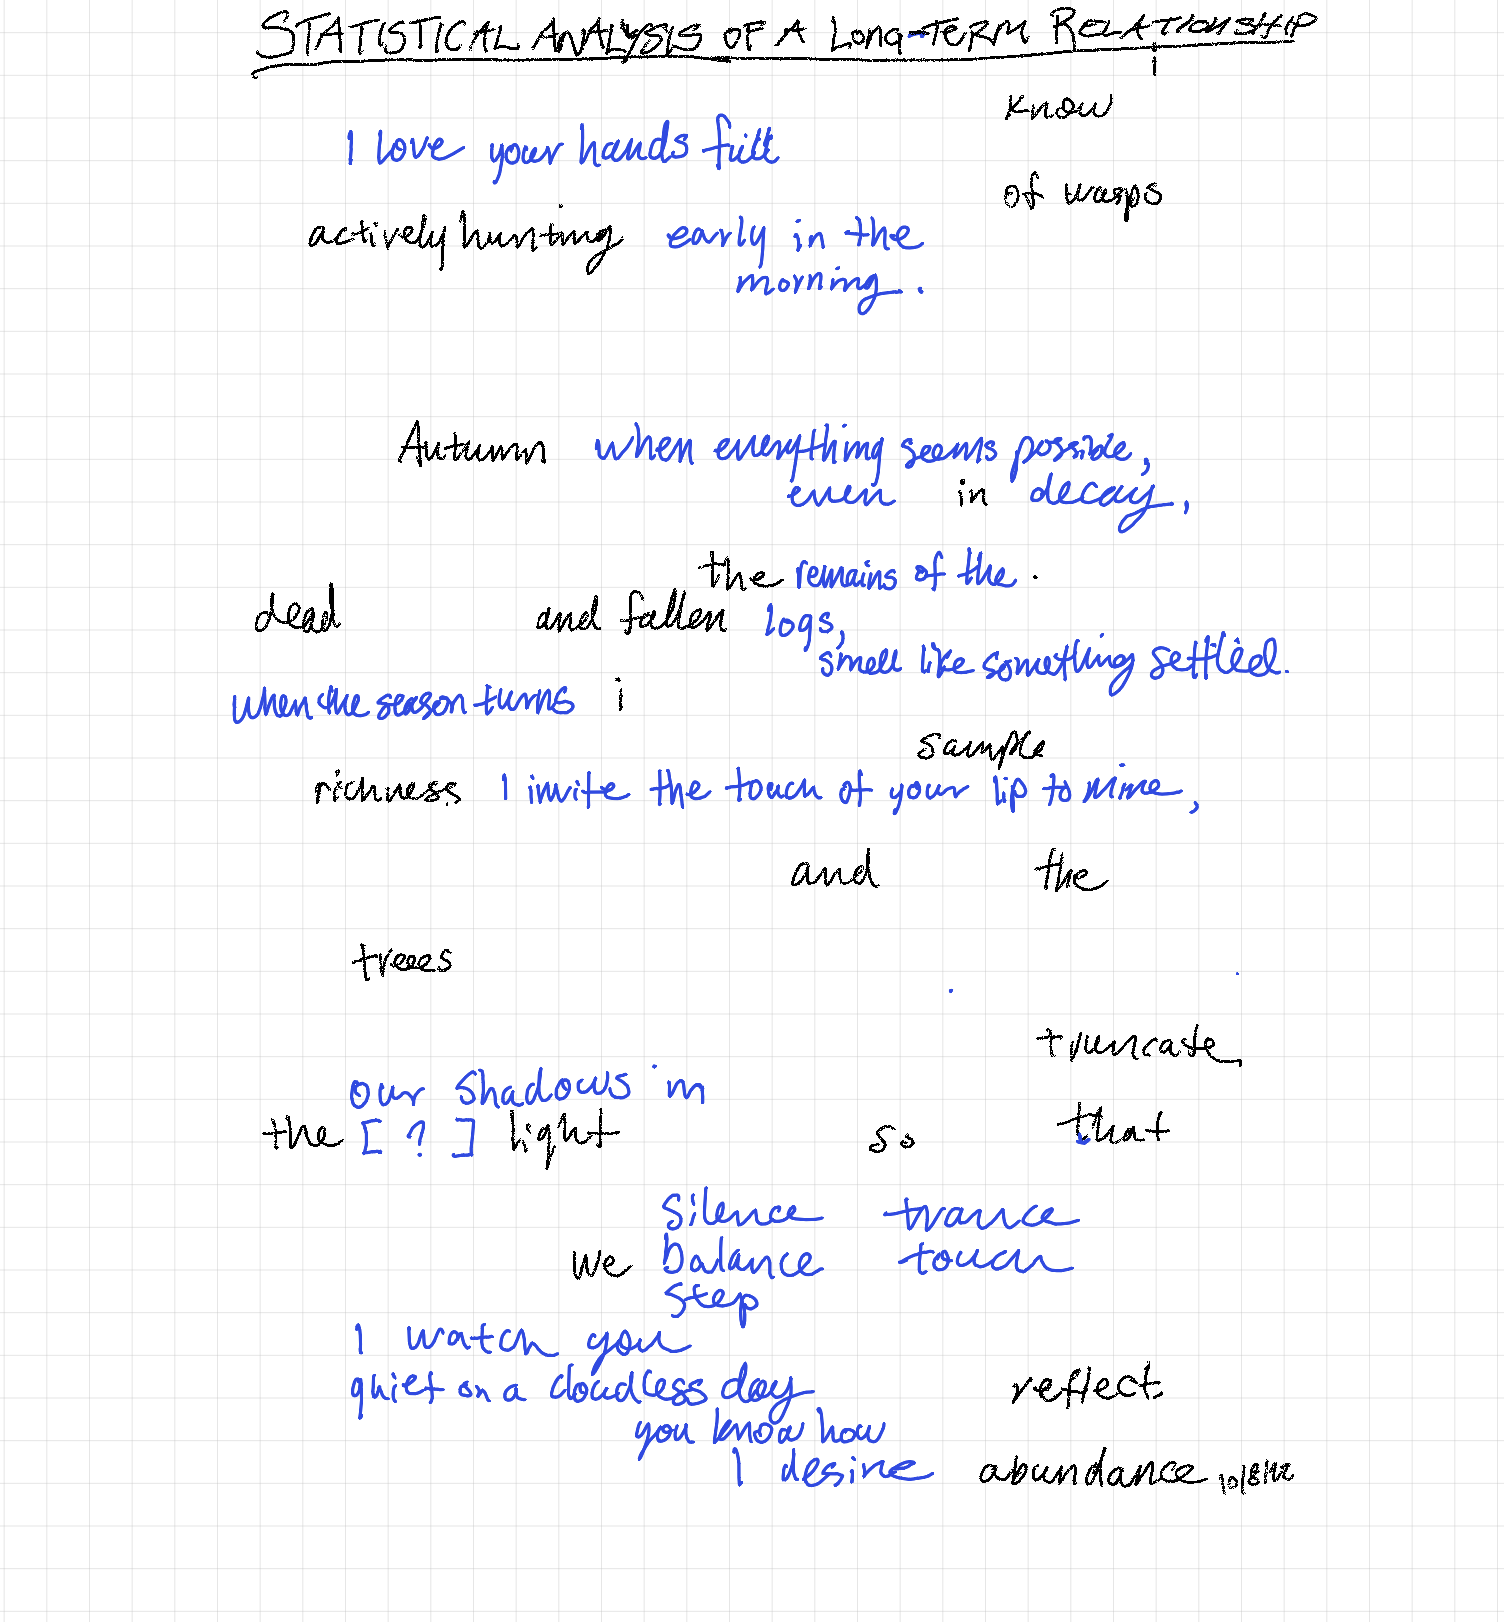 STATISTICAL ANALYSIS OF A LONG-TERM RELATIONSHIP
i
know
I love your hands full
of wasps
actively hunting early in the
morning.
Autumn when everything seems possible,
even in decay,
the remains of the
dead and fallen logs,
smell like something settled.
when the season turns i
sample
richness I invite the touch of your lip to mine,
and the
trees
truncate
our shadows in
the [ ? ] light so that
silence trance
we balance touch
step
I watch you
quiet on a cloudless day reflect
you know how
I desire abundance 10/8/22